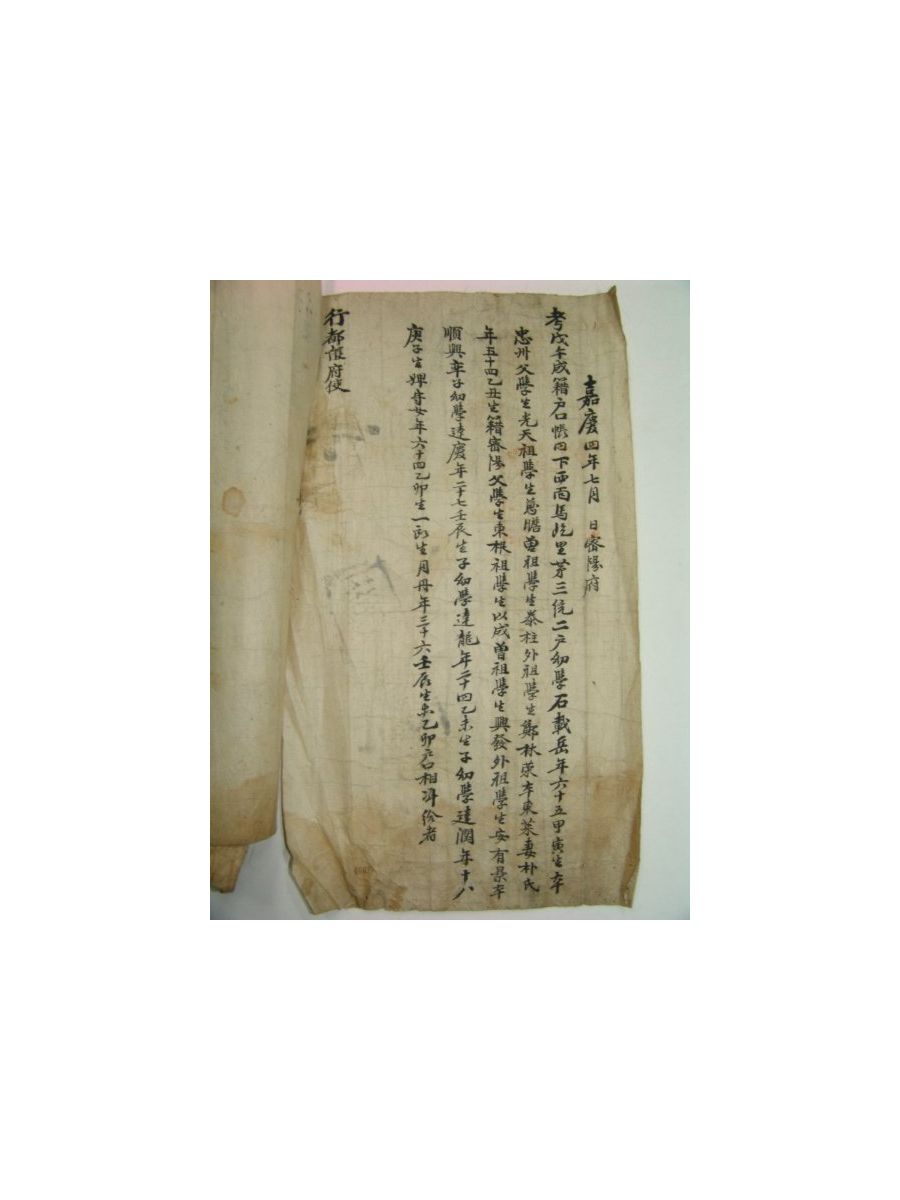 嘉慶四年七月 日密陽府
考戊午成籍戶口帳內下西面馬屹里第三統二戶幼學石載岳年六十五甲寅生本
忠州父學生光天祖學生 曾祖學生泰柱外祖學生鄭林 本東萊妻朴氏
年五十四乙丑生籍密陽父學生東根祖學生以成曾祖學生興發外祖學生安有 本
順興率子幼學達慶年二十七壬辰生子幼學達龍年二十四乙未生子幼學達潤年十八
庚子生婢 女年六十四乙卯生一所生月丹年三十六壬辰生 乙卯戶口相准給者
行都護府使